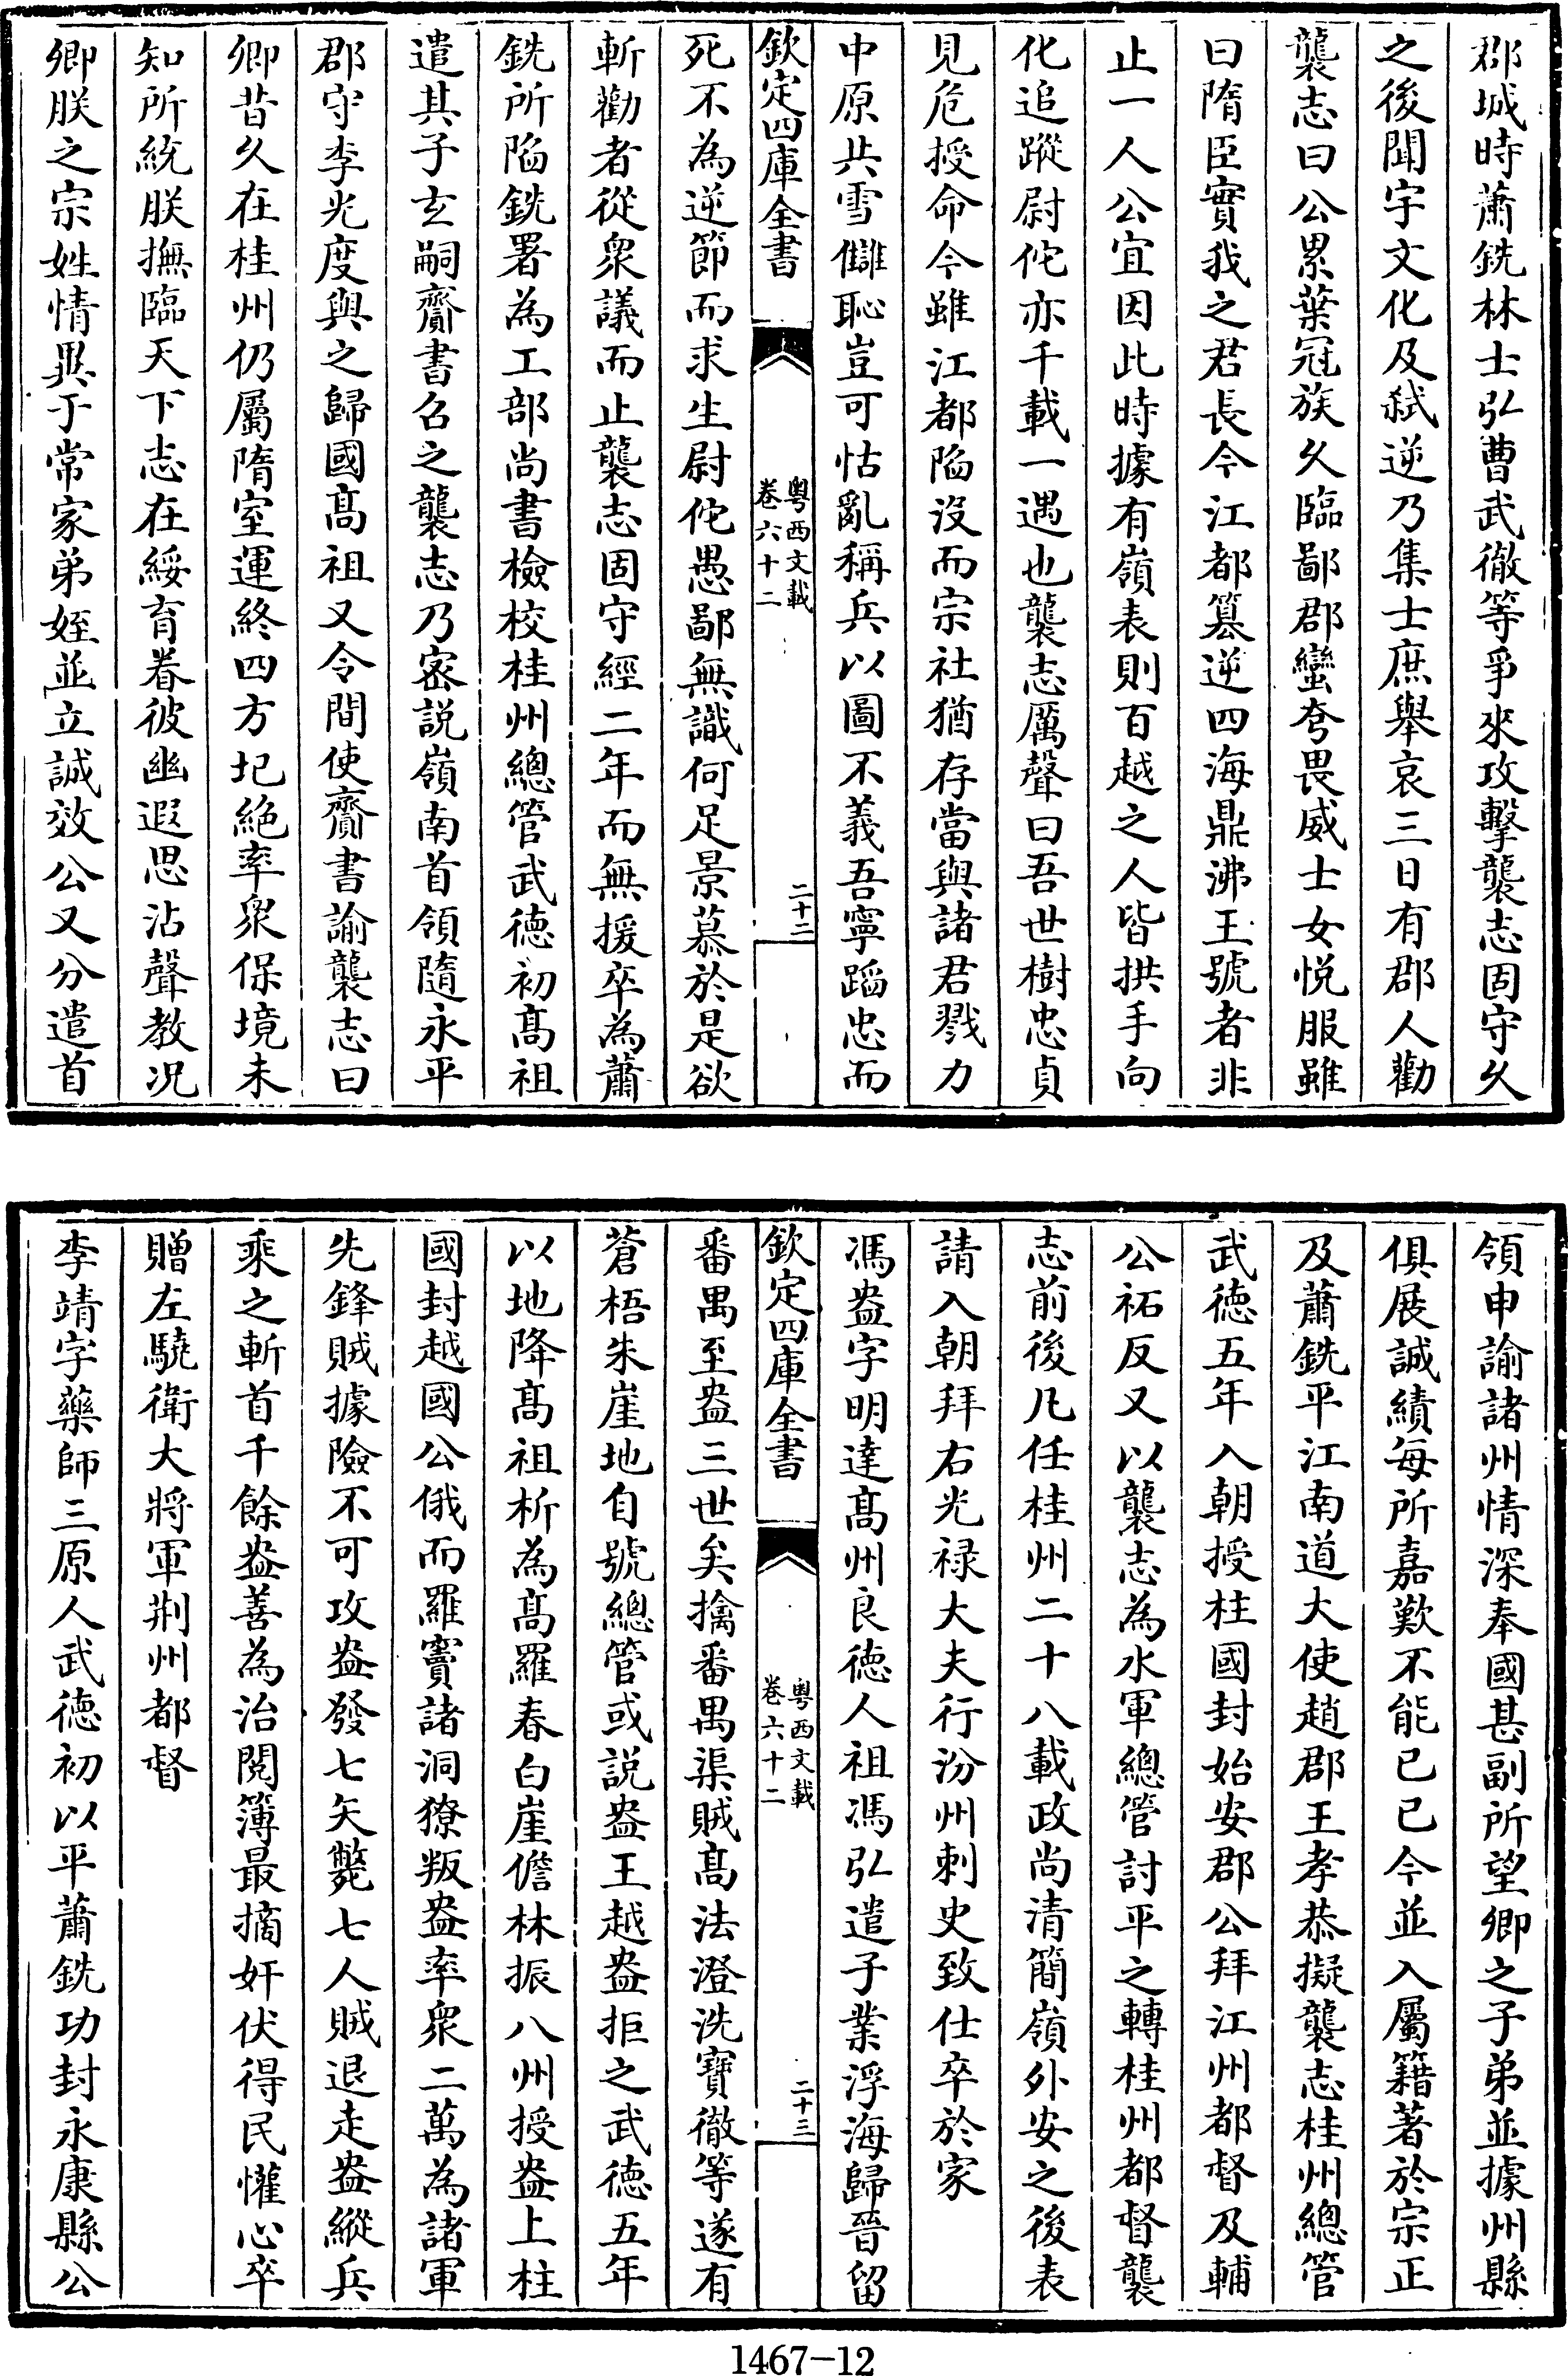 郡城時蕭銑林士弘曹武徹等爭來攻擊襲志固守久
之後聞宇文化及弑逆乃集士庶舉哀三日有郡人勸
襲志曰公累葉冠族久臨鄙郡蠻夸畏威士女悦服雖
曰隋臣實我之君長今江都簒逆四海鼎沸王號者非
止一人公宜因此時據有嶺表則百越之人皆拱手向
化追蹤尉佗亦千載一遇也襲志厲聲曰吾世樹忠貞
見危授命今雖江都陷沒而宗社猶存當與諸君戮力
中原共雪讎恥豈可怙亂稱兵以圖不義吾寧蹈忠而
欽定四庫全書
粤西文載
卷六十二
二十二
死不為逆節而求生尉佗愚鄙無識何足景慕於是欲
斬勸者從衆議而止襲志固守經二年而無援卒為蕭
銑所陷銑署為工部尚書檢校桂州總管武德初髙祖
遣其子玄嗣齎書召之襲志乃密説嶺南首領隨永平
郡守李光度與之歸國髙祖又令間使齎書諭襲志曰
卿昔久在桂州仍屬隋室運終四方圮絶率衆保境未
知所統朕撫臨天下志在綏育眷彼幽遐思沾聲教况
卿朕之宗姓情異于常家弟姪並立誠效公又分遣首
領申諭諸州情深奉國甚副所望卿之子弟並據州縣
俱展誠績每所嘉歎不能已已今並入屬籍著於宗正
及蕭銑平江南道大使趙郡王孝恭擬襲志桂州總管
武徳五年入朝授柱國封始安郡公拜江州都督及輔
公祏反又以襲志為水軍總管討平之轉桂州都督襲
志前後凡任桂州二十八載政尚清簡嶺外安之後表
請入朝拜右光禄大夫行汾州刺史致仕卒於家
馮盎字明達髙州良徳人祖馮弘遣子業浮海歸晉留
欽定四庫全書
粤西文載
卷六十二
二十三
番禺至盎三世矣擒番禺渠賊髙法澄洗寶徹等遂有
蒼梧朱崖地自號總管或説盎王越盎拒之武徳五年
以地降髙祖析為髙羅春白崖儋林振八州授盎上柱
國封越國公俄而羅竇諸洞獠叛盎率衆二萬為諸軍
先鋒賊據險不可攻盎發七矢斃七人賊退走盎縱兵
乘之斬首千餘盎善為治閱簿最擿奸伏得民懽心卒
贈左驍衛大將軍荆州都督
李靖字藥師三原人武德初以平蕭銑功封永康縣公
1467-12